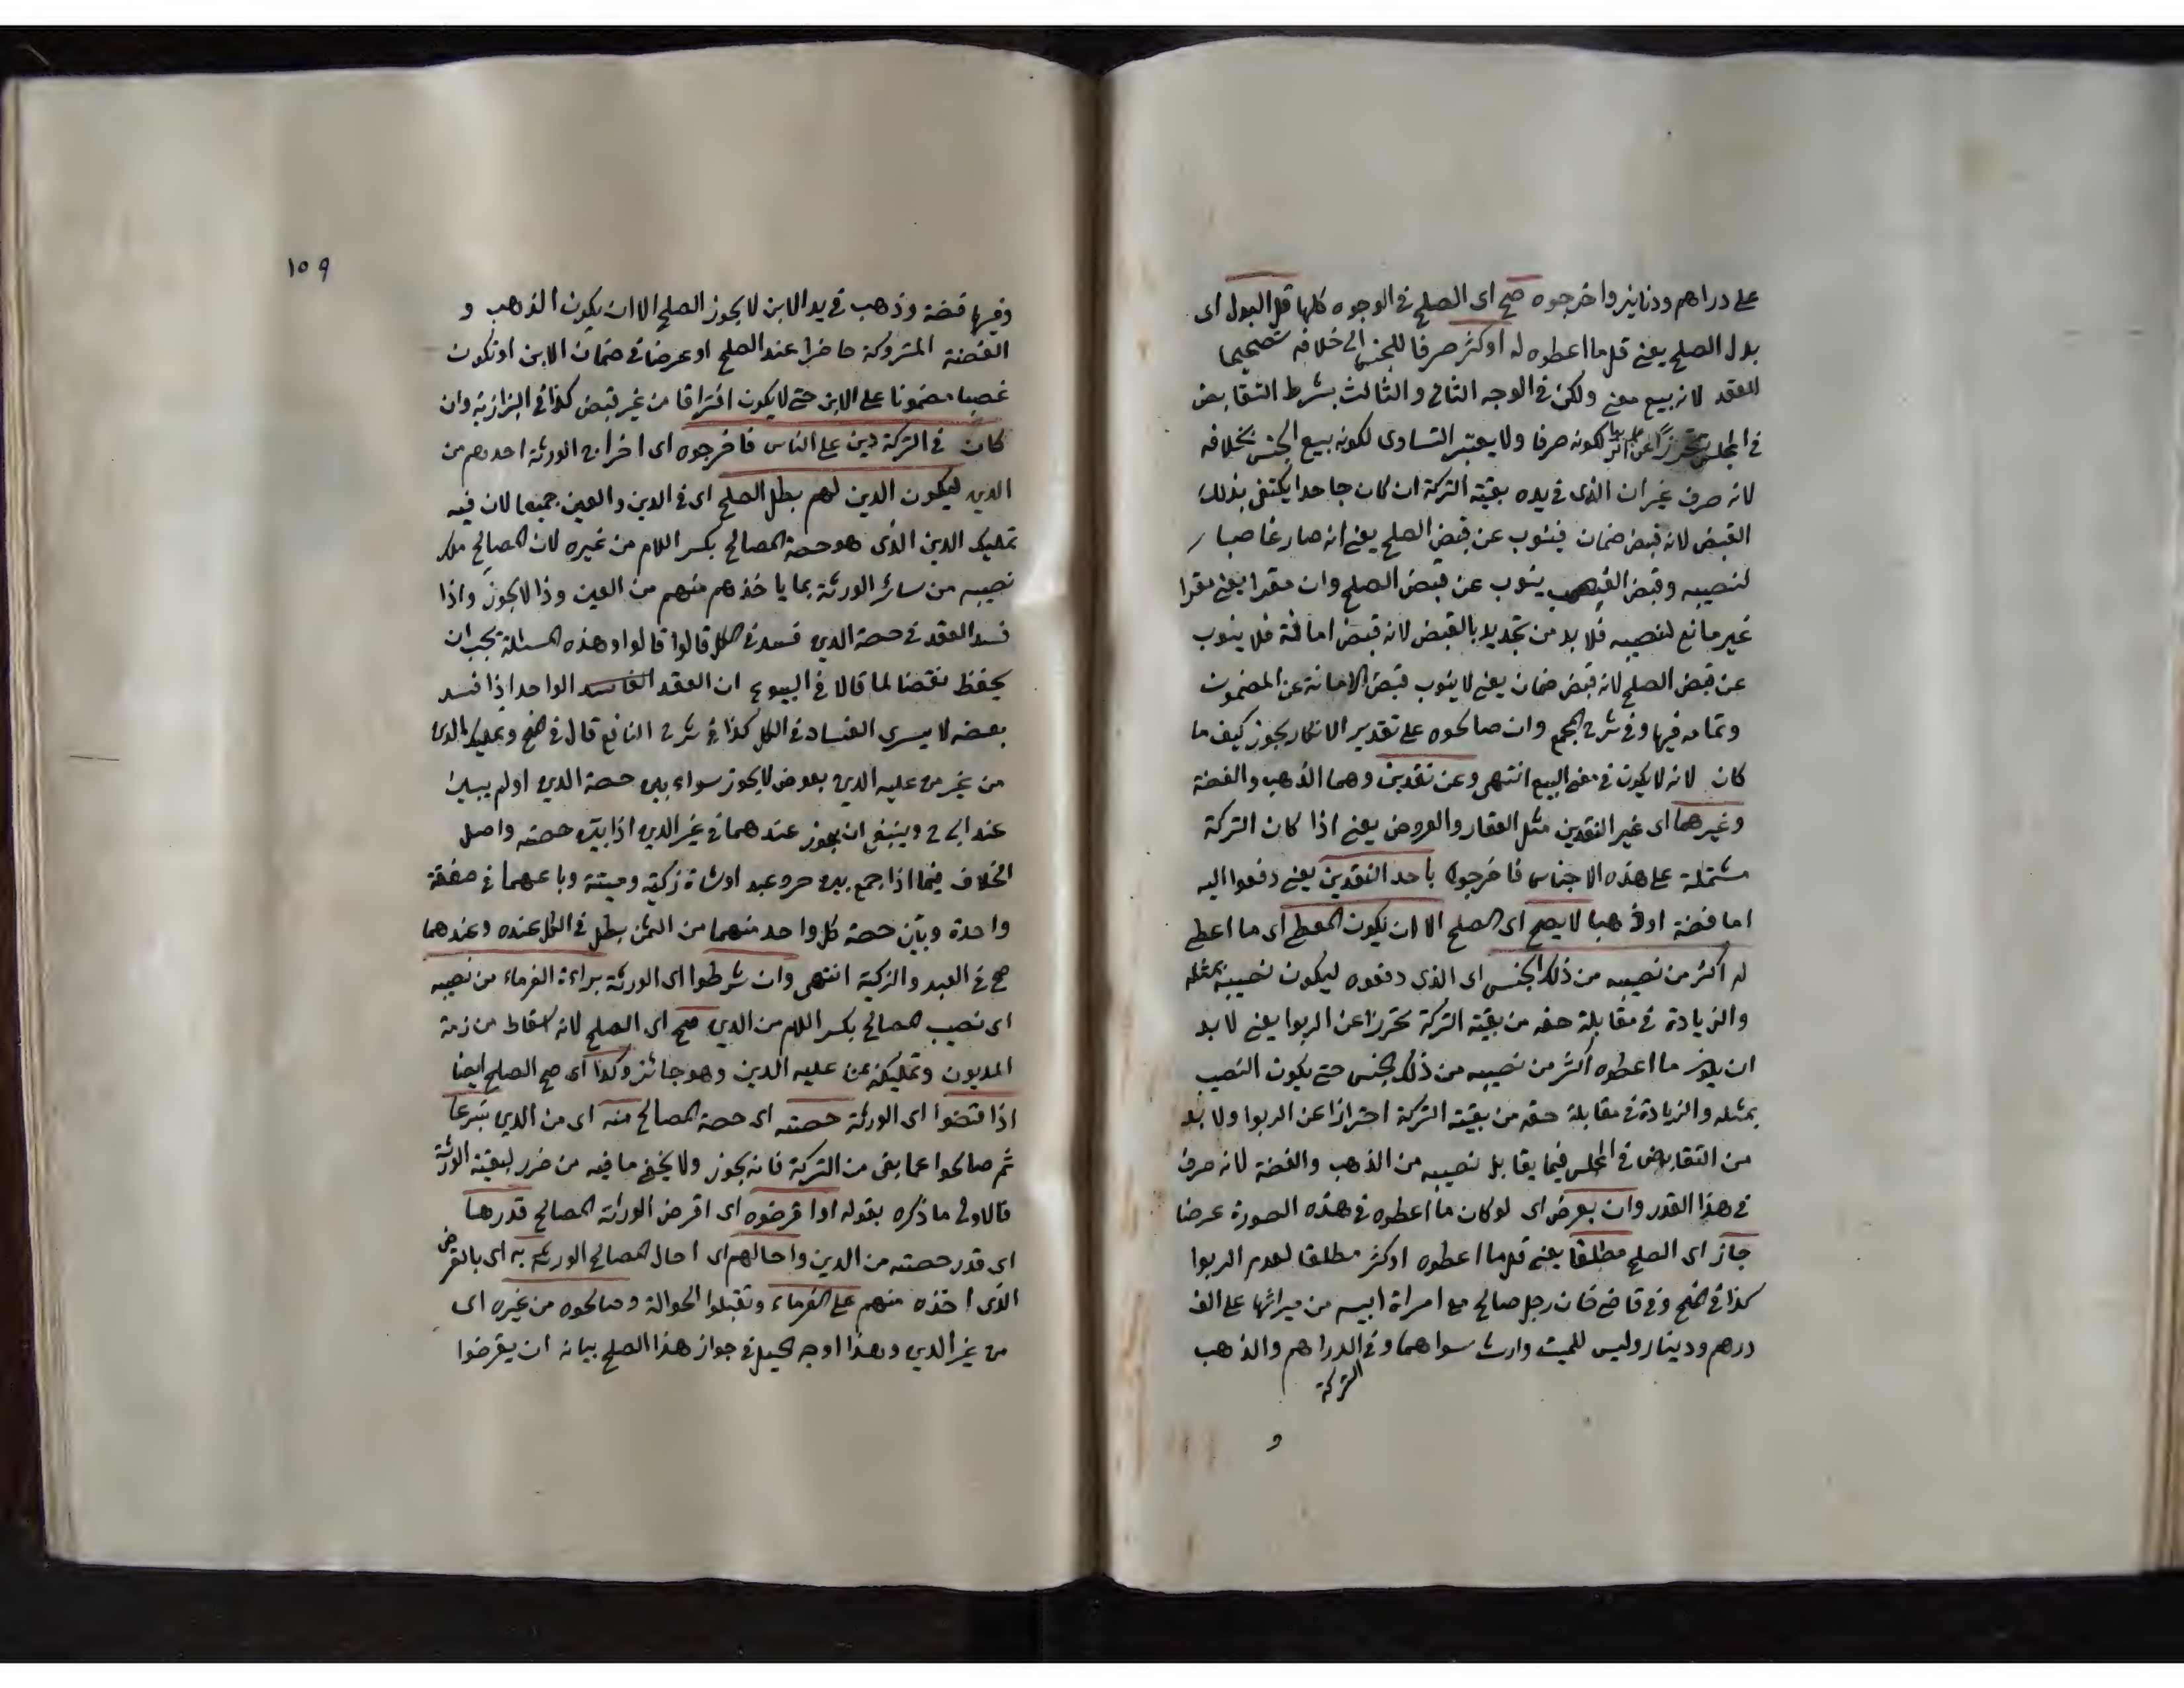 على دراهم ودنانير واخرجوه صح اى الصلح فى الوجوه كلها قل البدل اى
بدل الصلح يعنى قل ما اعطوه له او كثر صرفا للجنس الى خلافه تصحيحا
للعقد لانه بيع معنى ولكن فى الوجه الثانى والثالث بشرط التقابض
فى المجلس تحرزا عن الربا لكونه صرفا ولا يعتبر التساوى لكونه بيع الجنس بخلافه
لانه صرف غير ان الذى فى يده بقية التركة ان كان جاحدا يكتفى بذلك
القبض لانه قبض ضمان فينوب عن قبض الصلح يعنى انه صار غاصبا
لنصيبه وقبض الغصب ينوب عن قبض الصلح وان مقرا يعنى مقرا
غير مانع لنصيبه فلا بد من تجديد بالقبض لانه قبض امانة فلا ينوب
عن قبض الصلح لانه قبض ضمان يعنى لا ينوب قبض الامانة عن المضمون
وتمامه فيها وفى شرح المجمع وان صالحوه على تقدير الانكار يجوز كيف ما
كان لانه لا يكون فى معنى البيع انتهى وعن نقدين وهما الذهب والفضة
وغيرهما اى غير النقدين مثل العقار والعروض يعنى اذا كان التركة
مشتملة على هذه الاجناس فاخرجوه باحد النقدين يعنى دفعوا اليه
اما فضة او ذهبا لا يصح اى الصلح الا ان يكون المعطى اى ما اعطى
له اكثر من نصيبه من ذلك الجنس اى الذى دفعوه ليكون نصيبه بمثله
والزيادة فى مقابلة حقه من بقية التركة تحرزا عن الربوا يعنى لا بد
ان يكون ما اعطوه اكثر من نصيبه من ذلك الجنس حتى يكون النصيب
بمثله والزيادة فى مقابلة حقه من بقية التركة احترازا عن الربوا ولا بد
من التقابض فى المجلس فيما يقابل نصيبه من الذهب والفضة لانه صرف
فى هذا القدر وان بعرض اى لو كان ما اعطوه فى هذه الصورة عرضا
جاز اى الصلح مطلقا يعنى قل ما اعطوه او كثر مطلقا لعدم الربوا
كذا فى المنح وفى قاضى خان رجل صالح مع امراة ابيه من ميراثها على الف
درهم ودينار وليس للميت وارث سواهما وفى الدراهم والذهب
التركة
و
١٥٩
وفيها فضة وذهب فى يد الابن لا يجوز الصلح الا ان يكون الذهب و
الفضة المتروكة حاضرا عند الصلح او عرضا فى ضمان الابن او تكون
غصبا مضمونا على الابن حتى لا يكون افتراقا من غير قبض كذا فى البزازية وان
كان فى التركة دين على الناس فاخرجوه اى اخراج الورثة احدهم من
الدين ليكون الدين لهم بطل الصلح اى فى الدين والعين جميعا لان فيه
تمليك الدين الذى هو حصة المصالح بكسر اللام من غيره لان المصالح ملك
نصيبه من سائر الورثة بما ياخذهم منهم من العين وذا لا يجوز واذا
فسد العقد فى حصة الدين فسد فى الكل قالوا قالوا وهذه المسئلة يجب ان
يحفظ نقضا لما قالا فى البيوع ان العقد الفاسد الواحد اذا فسد
بعضه لا يسرى الفساد فى الكل كذا فى شرح النافع قال فى المنح وتمليك الدين
من غير من عليه الدين بعوض لا يجوز سواء بين حصة الدين او لم يبين
عند ابى ح وينبغى ان يجوز عندهما فى غير الدين اذا بين حصته واصل
الخلاف فيما اذا جمع بين حر وعبد او شاة زكية وميتة وباعهما فى صفقة
واحدة وبين حصة كل واحد منهما من الثمن بطل فى الكل عنده وعندهما
صح فى العبد والزكية انتهى وان شرطوا اى الورثة براءة الغرماء من نصيبه
اى نصيب المصالح بكسر اللام من الدين صح اى الصلح لانه اسقاط من ذمة
المديون وتمليكه عن عليه الدين وهو جائز وكذا اى صح الصلح ايضا
اذا قضوا اى الورثة حصته اى حصة المصالح منه اى من الدين تبرعا
ثم صالحوا عما بقى من التركة فانه يجوز ولا يخفى ما فيه من ضرر لبقية الورثة
فالاولى ما ذكره بقوله او اقرضوه اى اقرض الوراثة المصالح قدرها
اى قدر حصته من الدين واحالهم اى احال المصالح الورثة به اى بالقرض
الذى اخذه منهم على الغرماء وتقبلوا الحوالة وصالحوه من غيره اى
من غير الدين وهذا اوجه الحيل فى جواز هذا الصلح بيانه ان يقرضوا